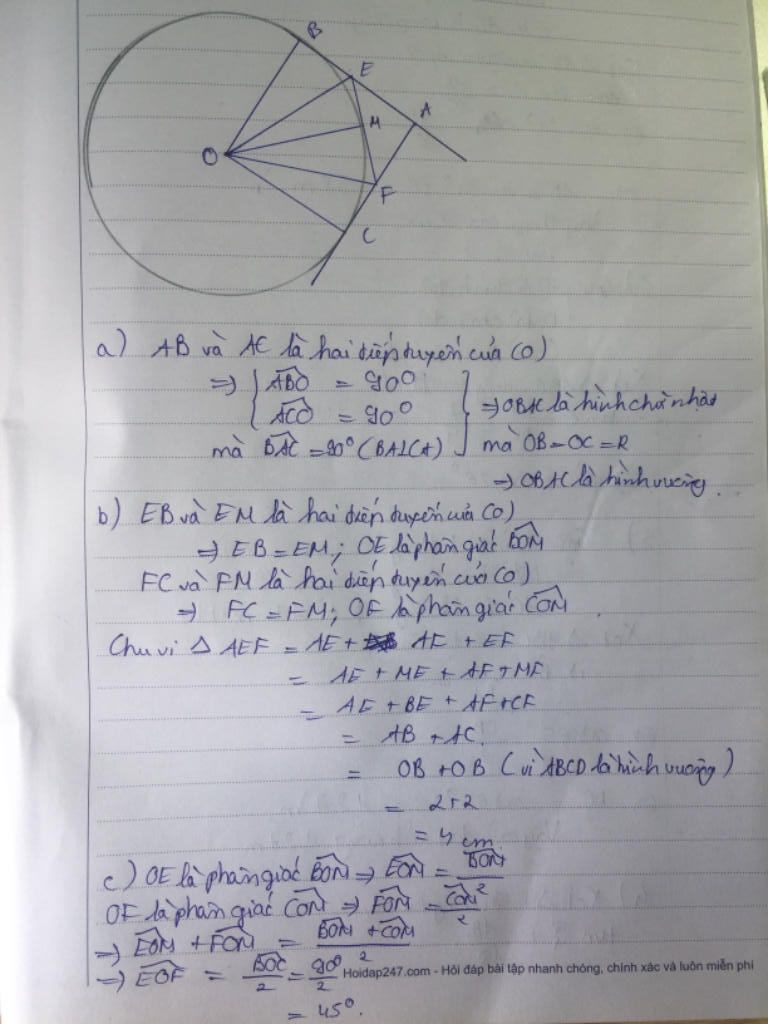 B
E
M
A
O
F
C
a) AB và AC là hai tiếp tuyến của (O)
=> { ABO = 90°
ACO = 90° } => OBAC là hình chữ nhật
mà BAC = 90° (BA⊥CA) mà OB = OC = R
=> OBAC là hình vuông.
b) EB và EM là hai tiếp tuyến của (O)
=> EB = EM; OE là phân giác BOM
FC và FM là hai tiếp tuyến của (O)
=> FC = FM; OF là phân giác COM.
Chu vi Δ AEF = AE + AF + EF
= AE + ME + AF + MF
= AE + BE + AF + CF
= AB + AC.
= OB + OB (vì ABCD là hình vuông)
= 2+2
= 4 cm
c) OE là phân giác BOM => EOM = BOM/2
OF là phân giác COM => FOM = COM/2
=> EOM + FOM = BOM + COM/2
=> EOF = BOC/2 = 90°/2
Hoidap247.com - Hỏi đáp bài tập nhanh chóng, chính xác và luôn miễn phí
= 45°.